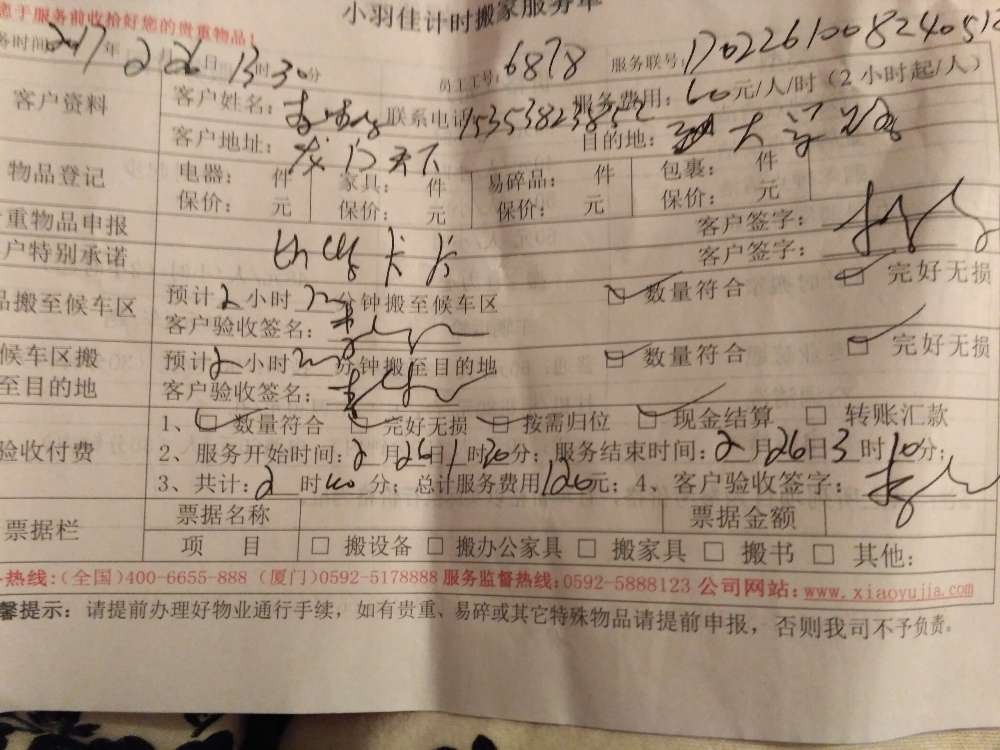 于服务前收拾好您的贵重物品! 小羽佳计时搬家服务单
务时间 2017年 2月26日 13时30分 员工工号: 6878 服务联号:
客户资料 客户姓名: 联系电话 服务费用: 60元/人/时 (2小时起/人)
客户地址: 龙门天下 目的地: 大学
物品登记 电器: 件 家具: 件 易碎品: 件 包裹: 件
保价: 元 保价: 元 保价: 元 保价: 元
重物品申报 客户签字:
户特别承诺 客户签字:
品搬至候车区 预计2小时 分钟搬至候车区 ☑ 数量符合 ☑ 完好无损
客户验收签名:
候车区搬至目的地 预计2小时 分钟搬至目的地 ☑ 数量符合 ☑ 完好无损
客户验收签名:
验收付费 1、☑ 数量符合 ☑ 完好无损 ☑ 按需归位 ☑ 现金结算 □ 转账汇款
2、服务开始时间: 2月26日1时20分; 服务结束时间: 2月26日3时10分;
3、共计: 2时 分; 总计服务费用120元; 4、客户验收签字:
票据栏 票据名称 票据金额
项 目 □ 搬设备 □ 搬办公家具 □ 搬家具 □ 搬书 □ 其他:
热线:(全国)400-6655-888 (厦门)0592-5178888 服务监督热线:0592-5888123 公司网站:www.xiaoyujia.com
馨提示: 请提前办理好物业通行手续, 如有贵重、易碎或其它特殊物品请提前申报, 否则我司不予负责。